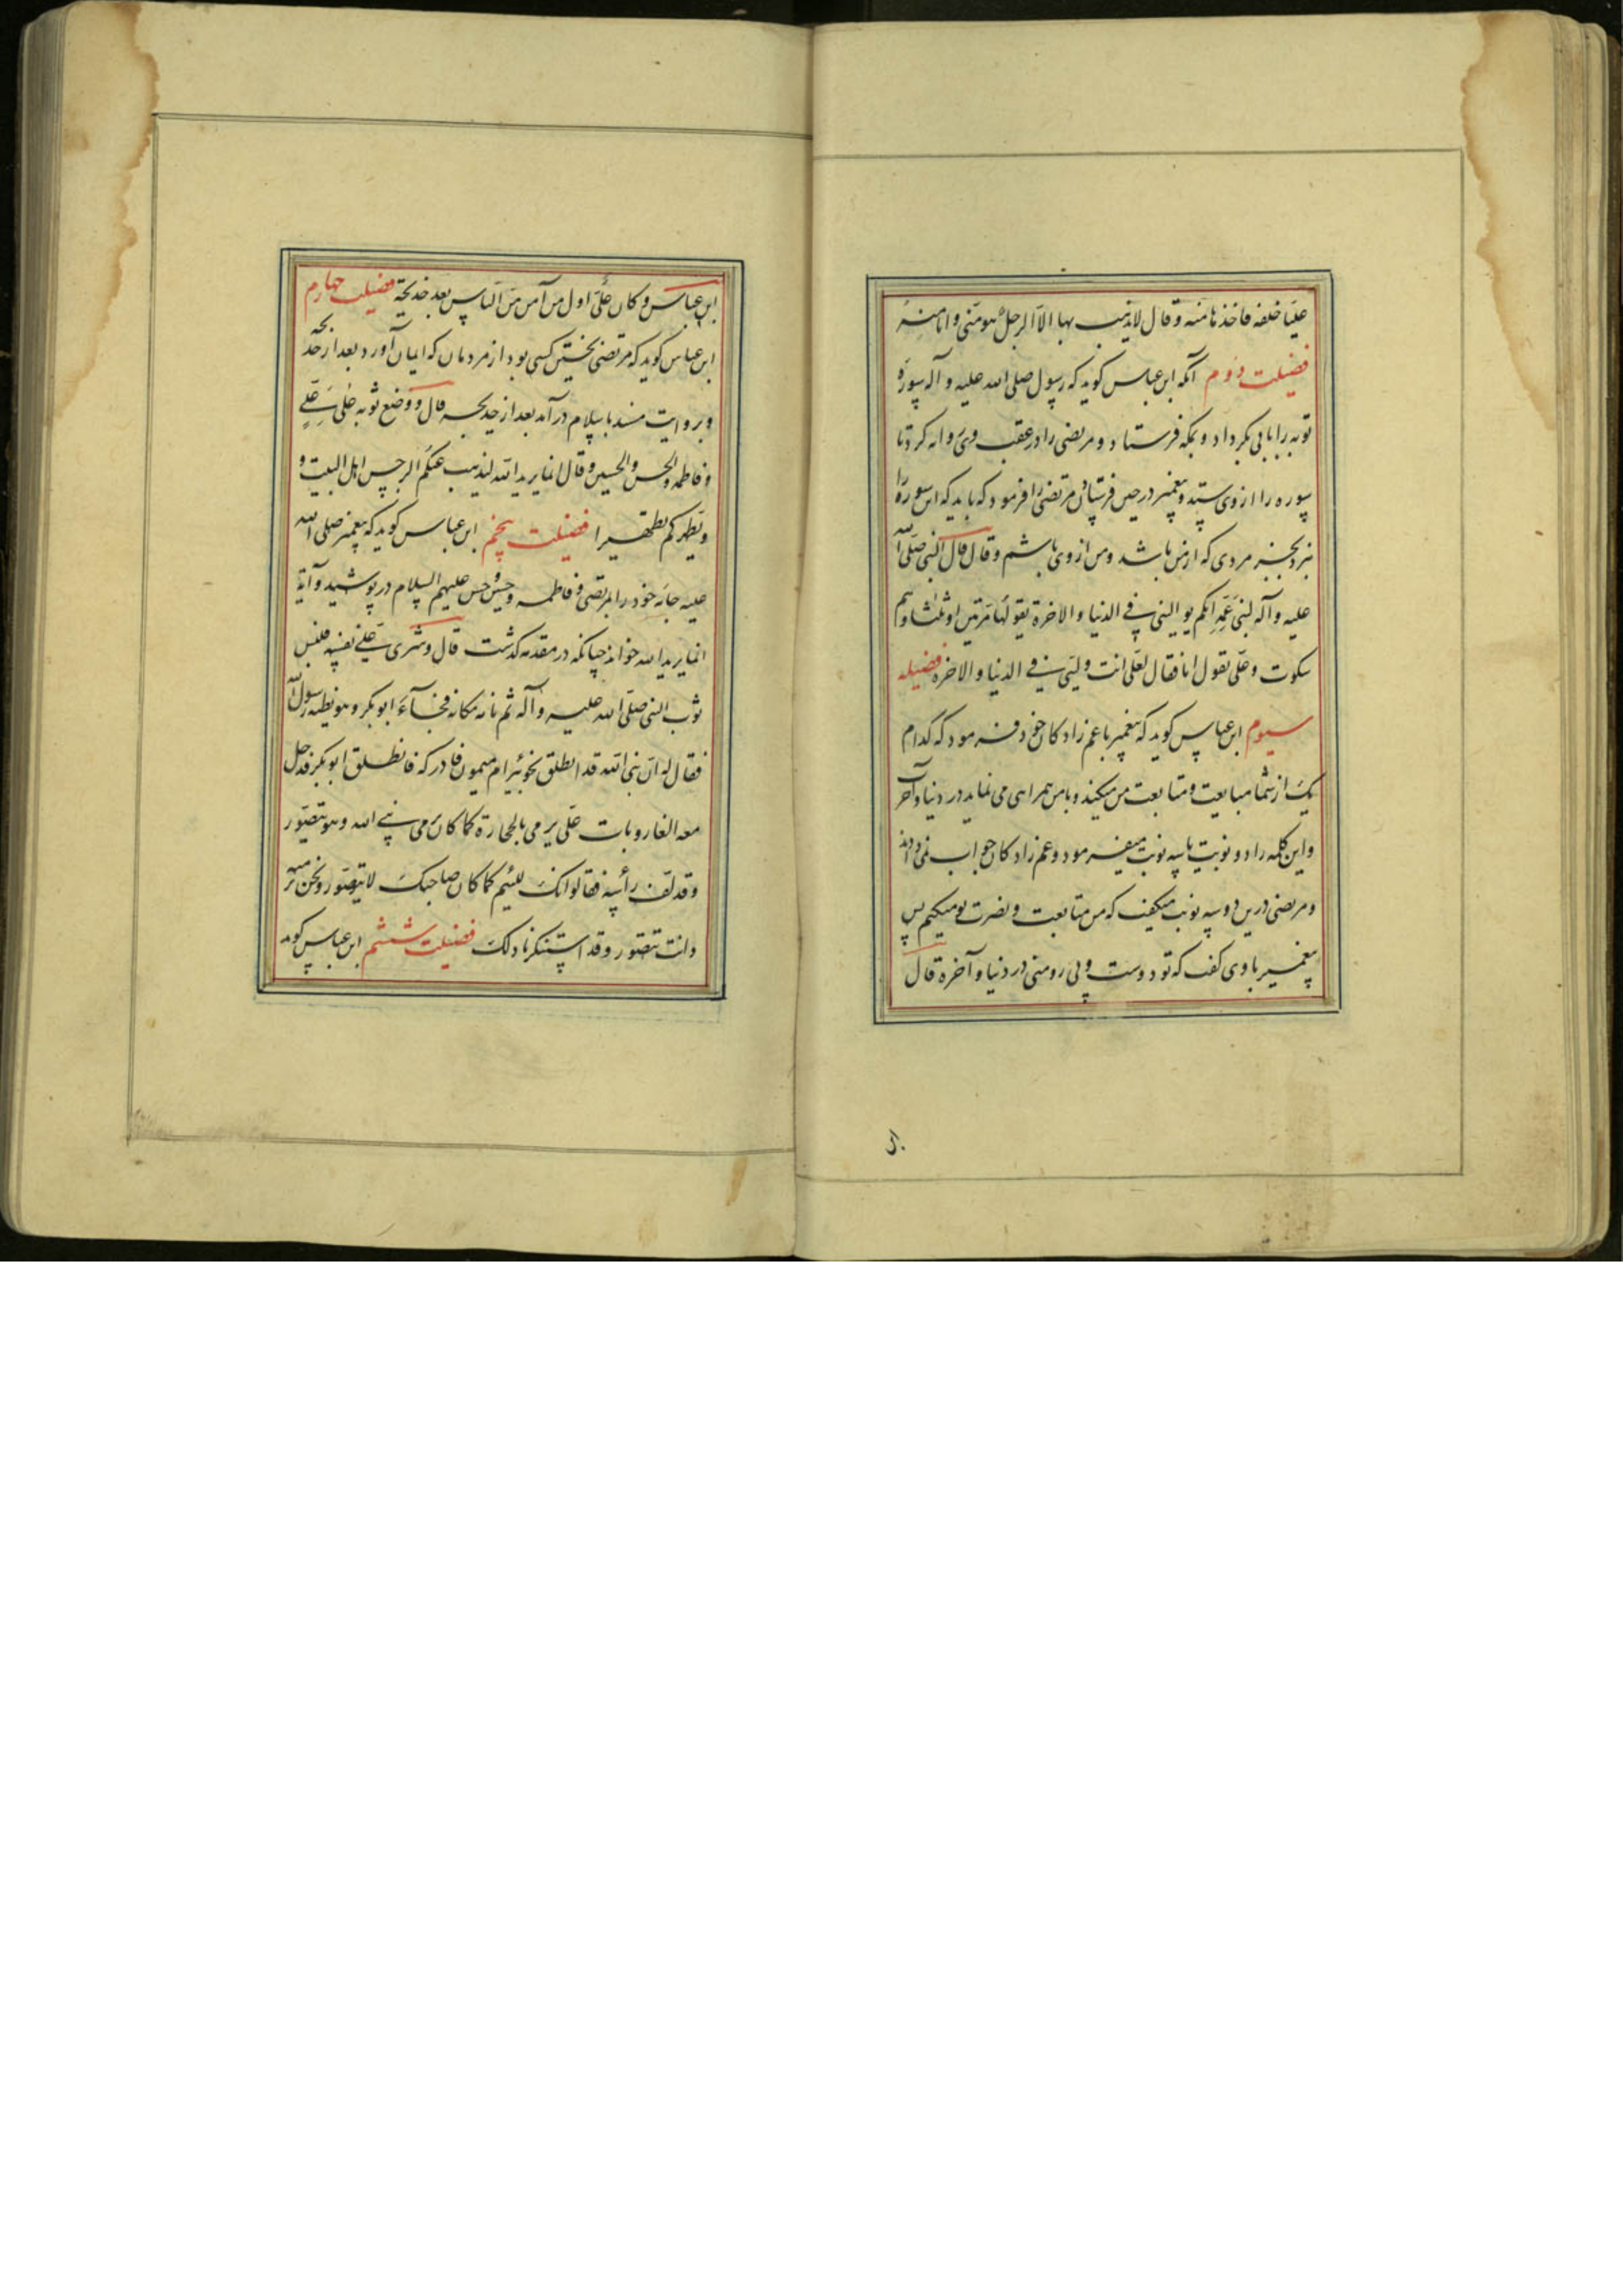 علیّا خلفه فاخذها منه و قال لا یذهب بها الاّ الرجل هو منّی و انا منه
فضیلت دوم آنکه ابن عباس کوید که رسول صلی الله علیه و آله سورهٔ
توبه را با بی بکر داد و بمکه فرستاد و مرتضی را در عقب وی روانه کرد تا
سوره را از وی ستد و پیغمبر در حین فرستادن مرتضی را فرمود که باید که این سوره را
نبرد بجز مردی که از من باشد و من از وی باشم و قال قال النبی صلی الله
علیه و آله لبنی عمّه ایکم یوالینی فی الدنیا و الاخرة یقولها مرّتین او ثلثا و هم
سکوت و علی یقول انا فقال لعلی انت ولیّی فی الدنیا و الاخرة فضیله
سیوم ابن عباس کوید که پیغمبر با عم زادکان خود فرمود که کدام
یک از شما مبایعت و متابعت من میکنید و با من همراهی می نماید در دنیا و آخرت
و این کلمه را دو نوبت یا سه نوبت میفرمود و عم زادکان جواب نمی دادند
و مرتضی درین دو سه نوبت میکفت که من متابعت و نصرت تو میکنم پس
پیغمبر با وی کفت که تو دوست و پی رو منی در دنیا و آخرة قال
ابن عباس و کان علیّ اول من آمن من الناس بعد خدیجة فضیلت چهارم
ابن عباس کوید که مرتضی نخستین کسی بود از مردمان که ایمان آورد بعد از خدیجه
و بروایت مسند باسلام در آمد بعد از خدیجه قال و وضع ثوبه علی علیّ
و فاطمه و الحسن و الحسین و قال انما یرید الله لیذهب عنکم الرجس اهل البیت و
و یطهرکم تطهیرا فضیلت پنجم ابن عباس کوید که پیغمبر صلی الله
علیه جامه خود را بمرتضی و فاطمه و حسین و حسن علیهم السلام در پوشید و آیة
انما یرید الله خواند چنانکه در مقدمه کذشت قال و شری علیّ نفسه فلبس
ثوب النبی صلی الله علیه و آله ثم نام مکانه فجآء ابو بکر و هو یظنه رسول الله
فقال له ان نبی الله قد انطلق نحو بئر ام میمون فادرکه فانطلق ابو بکر فدخل
معه الغار و بات علی یرمی بالحجارة کما کان یرمی نبی الله و هو یتضوّر
و قد لفّ رأسه فقالوا انک للئیم کما کان صاحبک لا یتضوّر و نحن نرمیه
و انت تتضوّر و قد استنکرنا ذلک فضیلت ششم ابن عباس کوید